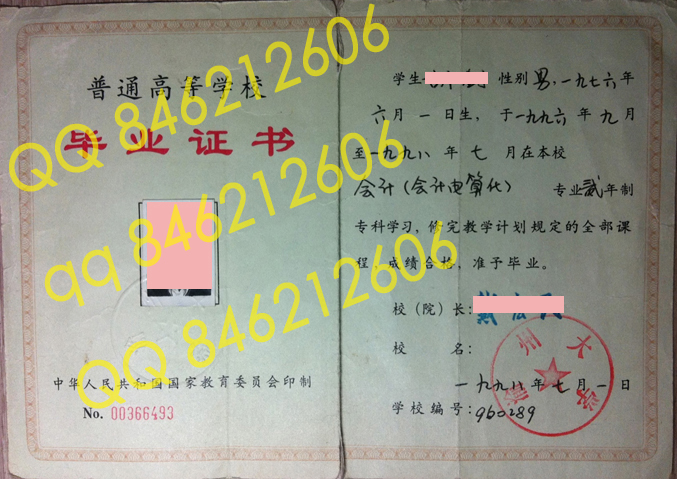 普通高等学校
毕业证书
中华人民共和国国家教育委员会印制
No. 00366493
学生 性别男,一九七六年
六月一日生,于一九九六年九月
至一九九八年七月在本校
会计(会计电算化) 专业贰年制
专科学习,修完教学计划规定的全部课
程,成绩合格,准予毕业。
校(院)长:
校 名:
州大学
一九九八年七月一日
学校编号:960289
QQ 846212606
qq 846212606
QQ 846212606